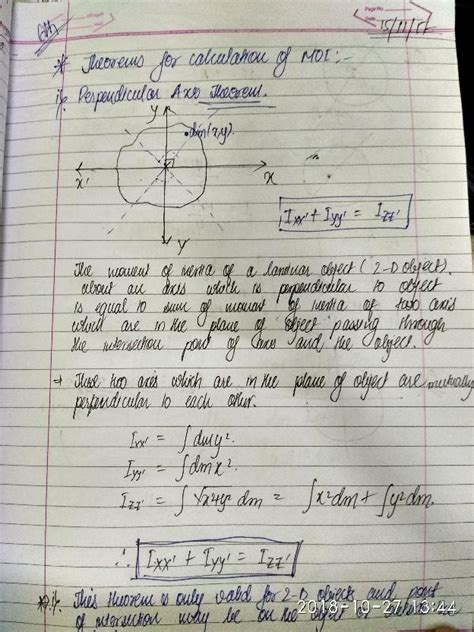 6th
Page No.
Date
15/11/17
* Theorems for calculation of MOI:-
i) Perpendicular Axis Theorem.
y
dm(x,y).
x' x
Y
Ixx' + Iyy' = Izz'
The moment of inertia of a laminar object (2-D object).
about an axis which is perpendicular to object
is equal to sum of moment of inertia of two axis
which are in the plane of object passing through
the intersection point of axis and the object.
→ These two axis which are in the plane of object are mutually
perpendicular to each other.
Ixx' = ∫dmy².
Iyy' = ∫dmx².
Izz' = ∫√x²+y² dm = ∫x²dm + ∫y²dm.
∴ Ixx' + Iyy' = Izz'
This theorem is only valid for 2-D objects and point
of intersection may be on the object or outside
2018-10-27 13:44